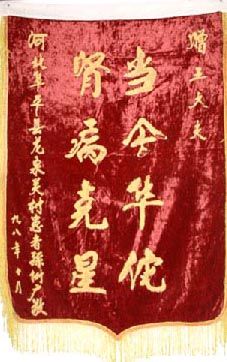 赠王大夫
当今华佗
肾病克星
河北阜平县龙泉关村患者孙树户敬
九八年十月